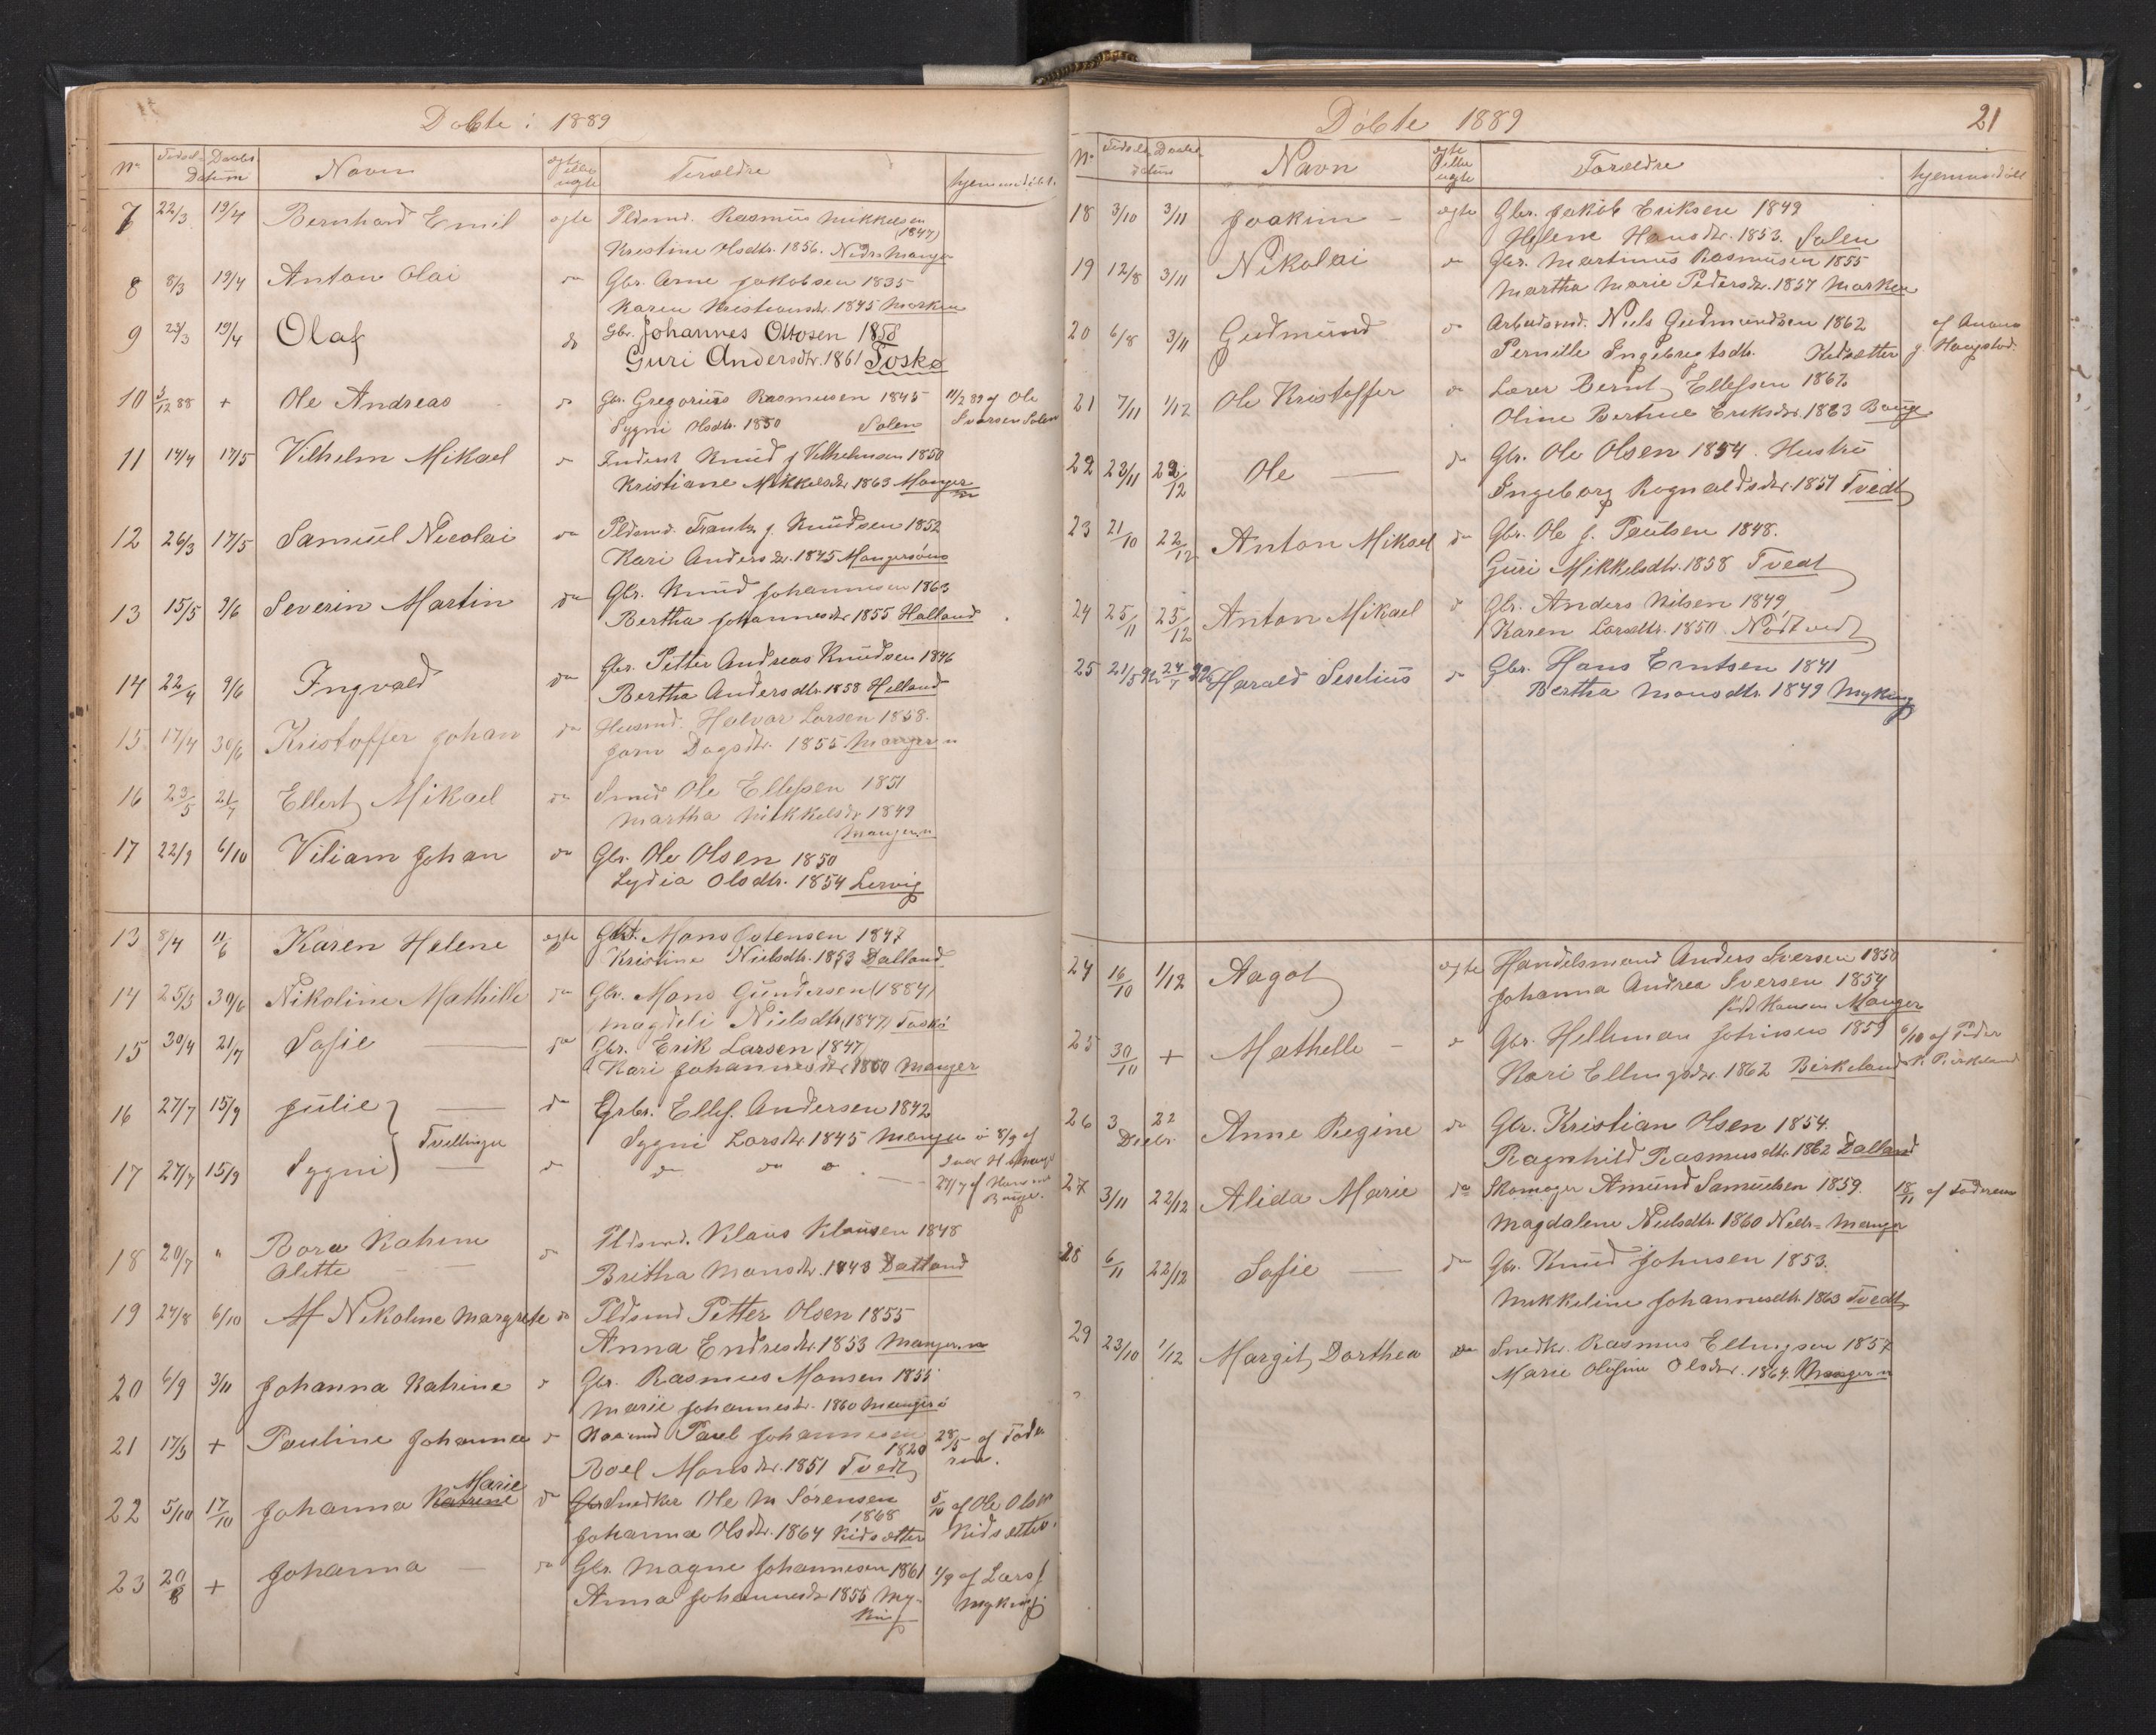 Døbte i 1889
No Fødsels Daabs Datum Navn ægte eller uægte Forældre hjemmedøbt.
7 22/3 19/4 Bernhard Emil ægte Pldsmd. Rasmus Mikkelsen (1847)
Kristine Olsdtr. 1856. Nedre Manger
8 8/3 19/4 Anton Olai do Gbr. Arne Jakobsen 1835
Karen Kristiansdr. 1845 Marken
9 23/3 19/4 Olaf do Gbr. Johannes Ottosen 1858
Guri Andersdtr. 1861 Toskø
10 5/12 88 + Ole Andreas d Gbr. Gregorius Rasmusen 1845 11/2 89 af Ole
Sygni Olsdtr. 1850 Solem Ivarsen Solem
11 14/4 17/5 Vilhelm Mikael d Inderst Knud J Vilhelmsen 1850
Kristiane Mikkelsdr 1863 Manger n
12 26/3 17/5 Samuel Nicolai do Pldsmd. Frantz J. Knudsen 1852
Kari Andersdr. 1845 Mangersøens
13 15/5 9/6 Severin Martin do Gbr. Knud Johannesen 1863
Bertha Johannesdr 1855 Halland
14 22/4 9/6 Ingvald do Gbr. Petter Andreas Knudsen 1846
Bertha Andersdtr. 1858 Helland
15 17/4 30/6 Kristoffer Johan do Husmd. Halvor Larsen 1858.
Jorn Dagsdtr. 1855 Manger n
16 23/5 21/7 Ellert Mikael do Smed Ole Ellefsen 1851
Martha Mikkelsdr 1849
Manger n
17 22/9 6/10 Viliam Johan do Gbr. Ole Olsen 1850
Lydia Olsdtr. 1854 Lervig
13 8/4 11/6 Karen Helene ægte Gbr. Mons Ostensen 1847
Kristine Nielsdtr. 1853 Dalland
14 25/5 30/6 Nikoline Mathilde do Gbr. Mons Gundersen (1884)
Magdeli Nielsdtr (1847) Toskø
15 30/4 21/7 Sofie do Gbr. Erik Larsen (1847)
Kari Johannesdtr 1850 Manger
16 27/7 15/9 Julie } Tvillinger do Grbr. Ellef. Andersen 1842
Sygni Larsdtr. 1845 Manger 8/9 af
17 27/7 15/9 Sygni d do do
27/7 af
18 20/7 " Bora Katrine do Pldsmd. Klaus Klausen 1848
Olette Britha Monsdtr. 1843 Dalland
19 24/8 6/10 Nikoline Margrete do Pldsmd Petter Olsen 1855
Anna Endresdtr. 1853 Manger n
20 6/9 3/11 Johanna Katrine d Gbr. Rasmus Monsen 1855
Marie Johannesdr. 1860 Mangerø
21 17/5 + Pauline Johanna d Paul Johannesen 28/5 af Fade
1820 ren.
Roel Monsdtr. 1851 Tvedt
22 5/10 17/10 Johanna Katrine Marie d Gbr Snedker Ole M Sørensen 5/10 af Ole Olsen
1868
Johanna Olsdtr. 1864 Kidsætter Kidsætter.
23 20/8 + Johanna do Gbr. Magne Johannesen 1861 1/9 af Lars J
Anna Johannesdr 1855 My- Myking
king
Døbte 1889 21
No Fødsels Daabs datum Navn ægte eller uægte Forældre hjemmedøbt
18 3/10 3/11 Joakim ægte Gbr. Jakob Eriksen 1849
Helene Hansdtr. 1853. Solem
19 12/8 3/11 Nikolai do Gbr. Martinus Rasmusen 1855
Martha Marie Pedersdr. 1857 Marken
20 6/8 3/11 Gudmund do Arbeidsmd. Niels Gudmundsen 1862
Pernille Ingebregtsdtr. Kidsætter
21 7/11 1/12 Ole Kristoffer do Lærer Bernt Ellefsen 1862
Oline Bertine Eriksdtr. 1863 Bauge
22 23/11 22/12 Ole do Gbr. Ole Olsen 1854. Hustru
Ingeborg Rognaldsdr. 1857 Tvedt
23 21/10 22/12 Anton Mikael do Gbr. Ole J. Paulsen 1848.
Guri Mikkelsdtr. 1858 Tvedt
24 25/11 25/12 Anton Mikael d Gbr. Anders Nilsen 1849,
Karen Larsdtr. 1850 Nødtvedt
25 21/5 24/7 Harald Seselius d Gbr. Hans Erntsen 1841
Bertha Monsdtr. 1849 Myking
24 16/10 1/12 Aagot ægte Handelsmand Anders Iversen 1850
Johanna Andrea Iversen 1854
født Hansen Manger
25 30/10 + Mathelle d Gbr. Hellman Johnsen 1859 6/10 af Peder
Kari Ellingsdr. 1862 Birkeland K Birkeland
26 3 22 Decbr. Anne Regine do Gbr. Kristian Olsen 1854.
Ragnhild Rasmusdtr. 1862 Dalland
27 3/11 22/12 Alida Marie do Skomager Amund Samuelsen 1859. 18/11 af Faderen
Magdalene Nielsdtr. 1860 Nedr= Manger
28 6/11 22/12 Sofie do Gbr. Knud Johnsen 1853.
Mikkeline Johannesdtr. 1863 Tvedt
29 23/10 1/12 Margit Dorthea do Snedkr. Rasmus Ellingsen 1857
Marie Olufine Olsdtr. 1864. Manger n